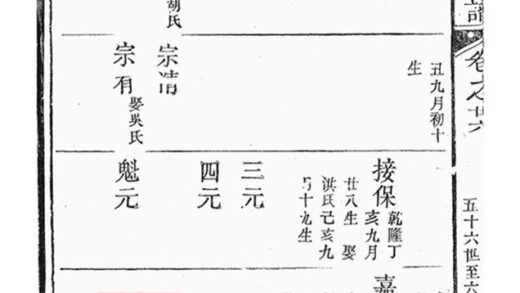 卷之六
五十六世至六
丑九月初十
生
宗清
宗有 娶吳氏
胡氏
接保 乾隆丁
亥九月
廿八生 娶
洪氏己亥九
月十九生
三元
四元
魁元
嘉